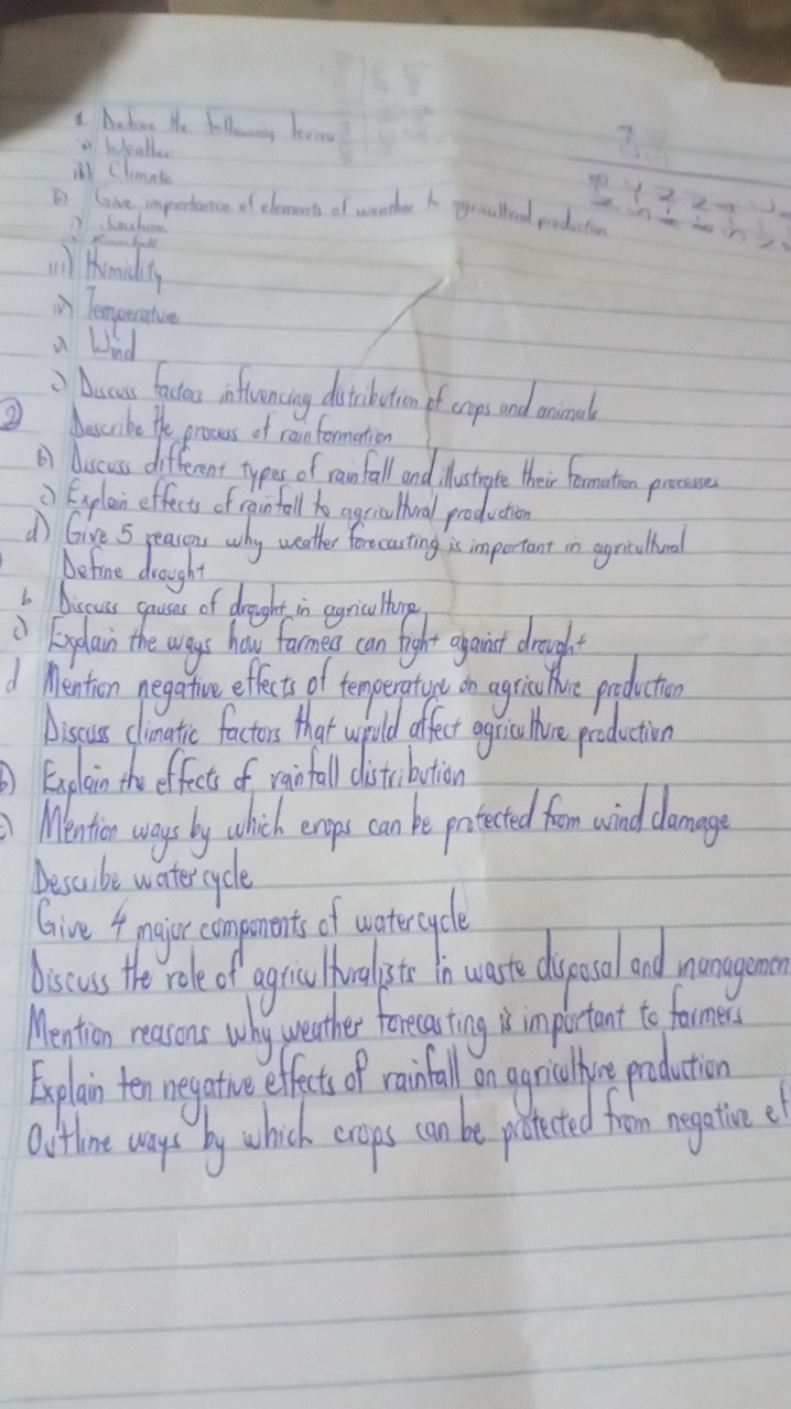 1. Define the following terms
i) Weather
ii) Climate
b) Give importance of elements of weather to agricultural production
i) Sunshine
Rainfall
iii) Humidity
iv) Temperature
v) Wind
c) Discuss factors influencing distribution of crops and animals
2 Describe the process of rain formation
b) Discuss different types of rainfall and illustrate their formation processes
c) Explain effects of rainfall to agricultural production
d) Give 5 reasons why weather forecasting is important in agricultural
Define drought
b Discuss causes of drought in agriculture
c) Explain the ways how farmers can fight against drought
d Mention negative effects of temperature on agriculture production
Discuss climatic factors that would affect agriculture production
b) Explain the effects of rainfall distribution
c) Mention ways by which crops can be protected from wind damage
Describe water cycle
Give 4 major components of water cycle
Discuss the role of agriculturalists in waste disposal and managemen
Mention reasons why weather forecasting is important to farmers
Explain ten negative effects of rainfall on agriculture production
Outline ways by which crops can be protected from negative ef